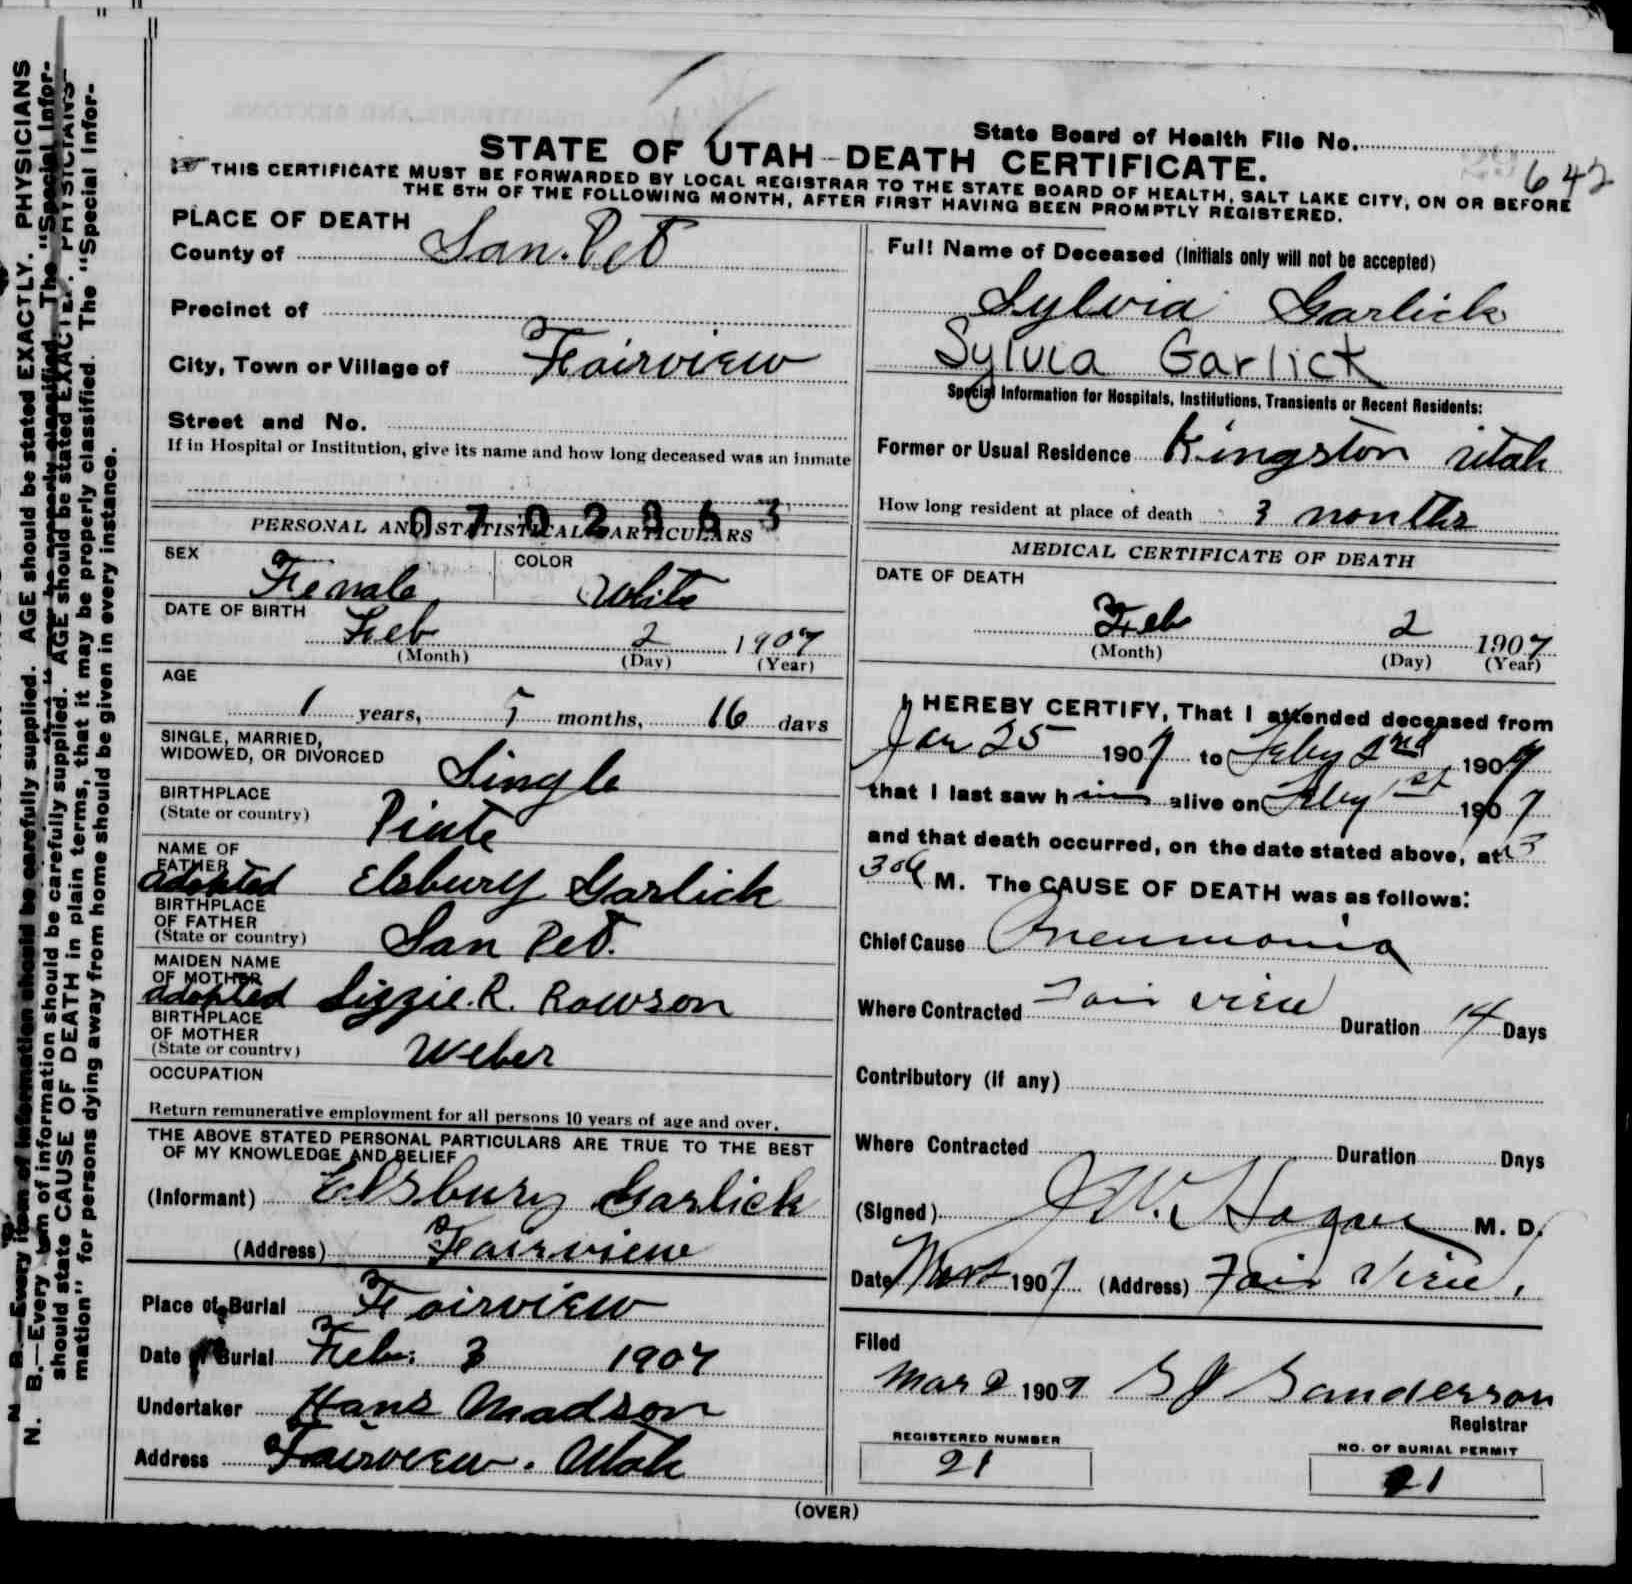 State Board of Health File No.
642
STATE OF UTAH-DEATH CERTIFICATE.
THIS CERTIFICATE MUST BE FORWARDED BY LOCAL REGISTRAR TO THE STATE BOARD OF HEALTH, SALT LAKE CITY, ON OR BEFORE
THE 5TH OF THE FOLLOWING MONTH, AFTER FIRST HAVING BEEN PROMPTLY REGISTERED.
PLACE OF DEATH
County of San. Pet
Precinct of
City, Town or Village of Fairview
Street and No.
If in Hospital or Institution, give its name and how long deceased was an inmate
0702363
PERSONAL AND STATISTICAL PARTICULARS
SEX Female
COLOR White
DATE OF BIRTH
Feb 2 1907
(Month) (Day) (Year)
AGE
1 years, 5 months, 16 days
SINGLE, MARRIED,
WIDOWED, OR DIVORCED Single
BIRTHPLACE
(State or country) Piute
NAME OF
FATHER
adopted Elsbury Garlick
BIRTHPLACE
OF FATHER
(State or country) San Pet.
MAIDEN NAME
OF MOTHER
adopted Lizzie. R. Rowson
BIRTHPLACE
OF MOTHER
(State or country) Weber
OCCUPATION
Return remunerative employment for all persons 10 years of age and over.
THE ABOVE STATED PERSONAL PARTICULARS ARE TRUE TO THE BEST
OF MY KNOWLEDGE AND BELIEF
(Informant) Elsbury Garlick
(Address) Fairview
Place of Burial Fairview
Date of Burial Feb. 3 1907
Undertaker Hans Madson
Address Fairview. Utah
Full Name of Deceased (Initials only will not be accepted)
Sylvia Garlick
Sylvia Garlick
Special Information for Hospitals, Institutions, Transients or Recent Residents:
Former or Usual Residence Kingston Utah
How long resident at place of death 3 months
MEDICAL CERTIFICATE OF DEATH
DATE OF DEATH
Feb 2 1907
(Month) (Day) (Year)
I HEREBY CERTIFY, That I attended deceased from
Jan 25 1907 to Feby 2nd 1907
that I last saw him alive on Feby 1st 1907
and that death occurred, on the date stated above, at 3
M. The CAUSE OF DEATH was as follows:
Chief Cause Pneumonia
Where Contracted Fair view Duration 14 Days
Contributory (if any)
Where Contracted Duration Days
(Signed) M. D.
Date 1907 (Address) Fair View,
Filed
Mar 2 1907 Sanderson
Registrar
REGISTERED NUMBER
21
NO. OF BURIAL PERMIT
21
(OVER)
N. B.—Every item of information should be carefully supplied. AGE should be stated EXACTLY. PHYSICIANS
should state CAUSE OF DEATH in plain terms, that it may be properly classified. The "Special Infor-
mation" for persons dying away from home should be given in every instance.